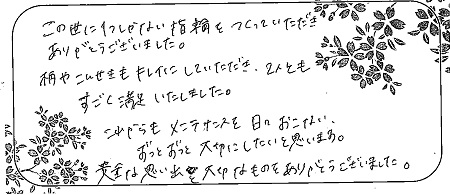 この世に1つしかない指輪をつくっていただき
ありがとうございました。
柄やこんせきもキレイにしていただき、2人とも
すごく満足いたしました。
これからもメンテナンスを日々おこない、
ずっとずっと大切にしたいと思います。
貴重な思い出と大切なものをありがとうございました。